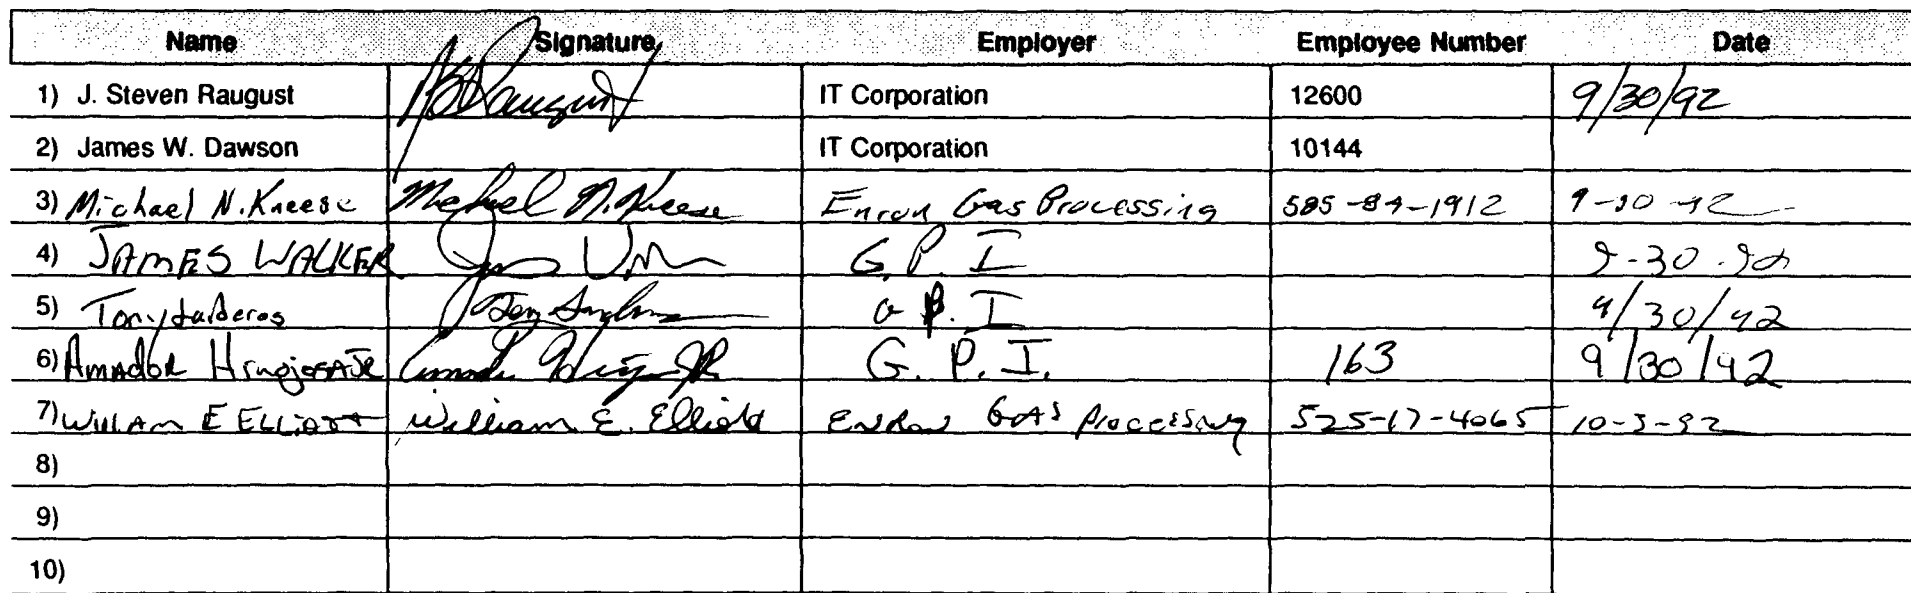 Name Signature Employer Employee Number Date
1) J. Steven Raugust IT Corporation 12600 9/30/92
2) James W. Dawson IT Corporation 10144
3) Michael N. Kneese Michael N. Kneese Enron Gas Processing 585-84-1912 9-30-92
4) JAMES WALKER G. P. I 9-30-92
5) Tony G. P. I 9/30/92
6) Amador G. P. I. 163 9/30/92
7) William E Elliott William E. Elliott Enron Gas Processing 525-17-4065 10-3-92
8)
9)
10)